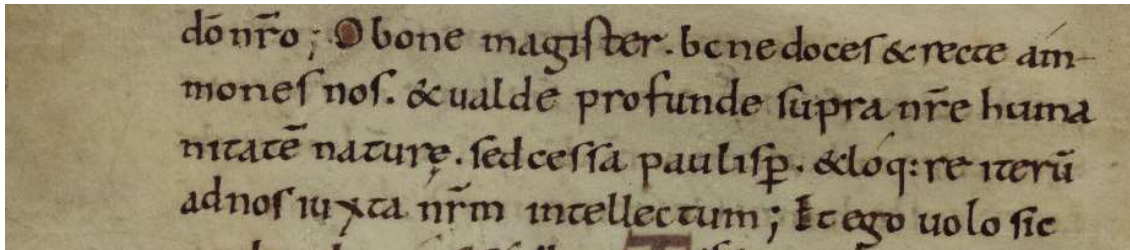 dō nr̄o; O bone magiſter. bene doceſ & recte am-
moneſ noſ. & ualde profunde ſupra nr̄e huma
nitatē naturę. ſed ceſſa pauliſꝑ. & loq:re iterū
ad noſ iuxta nr̄m intellectum; Et ego uolo ſic